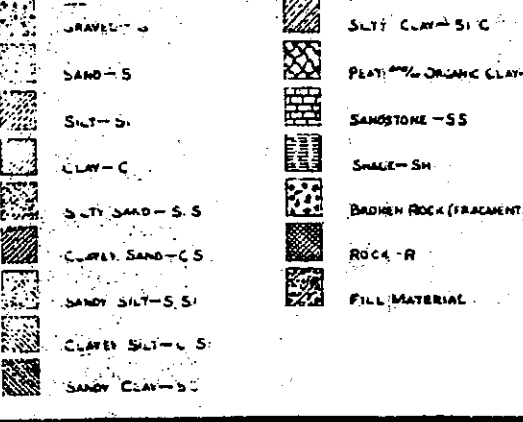 GRAVEL - G
SAND - S
SILT - Si
CLAY - C
SILTY SAND - Si S
CLAYEY SAND - C S
SANDY SILT - S Si
CLAYEY SILT - C Si
SANDY CLAY - S C
SILTY CLAY - Si C
PEAT AND/OR ORGANIC CLAY -
SANDSTONE - SS
SHALE - SH
BROKEN ROCK (FRAGMENT
ROCK - R
FILL MATERIAL